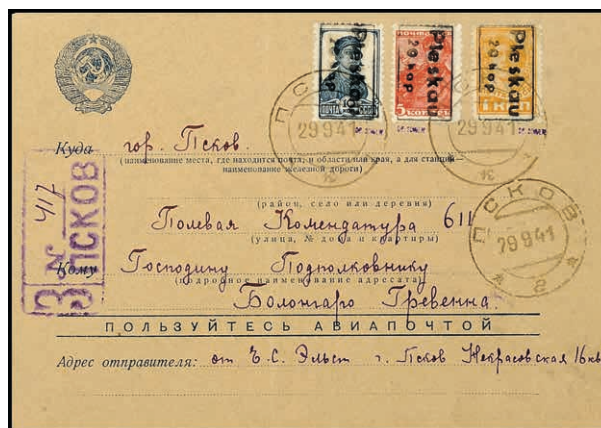 Pleskau
20 kop
Pleskau
20 kop
Pleskau
20 kop
ПОЧТА
5 КОПЕЕК
1 КОП
ПСКОВ
29 9 41
29 9 41
ПСКОВ
29 9 41
2
Куда гор. Псков.
(наименование места, где находится почта, и области или края, а для станций—
наименование железной дороги)
З № 417
ПСКОВ
(район, село или деревня)
Полевая Комендатура 611
(улица, № дома и квартиры)
Кому Господину Подполковнику
(подробное наименование адресата)
Болонгаро Гревенна.
ПОЛЬЗУЙТЕСЬ АВИАПОЧТОЙ
Адрес отправителя: от Э.С. Эльст г. Псков Некрасовская 16 кв